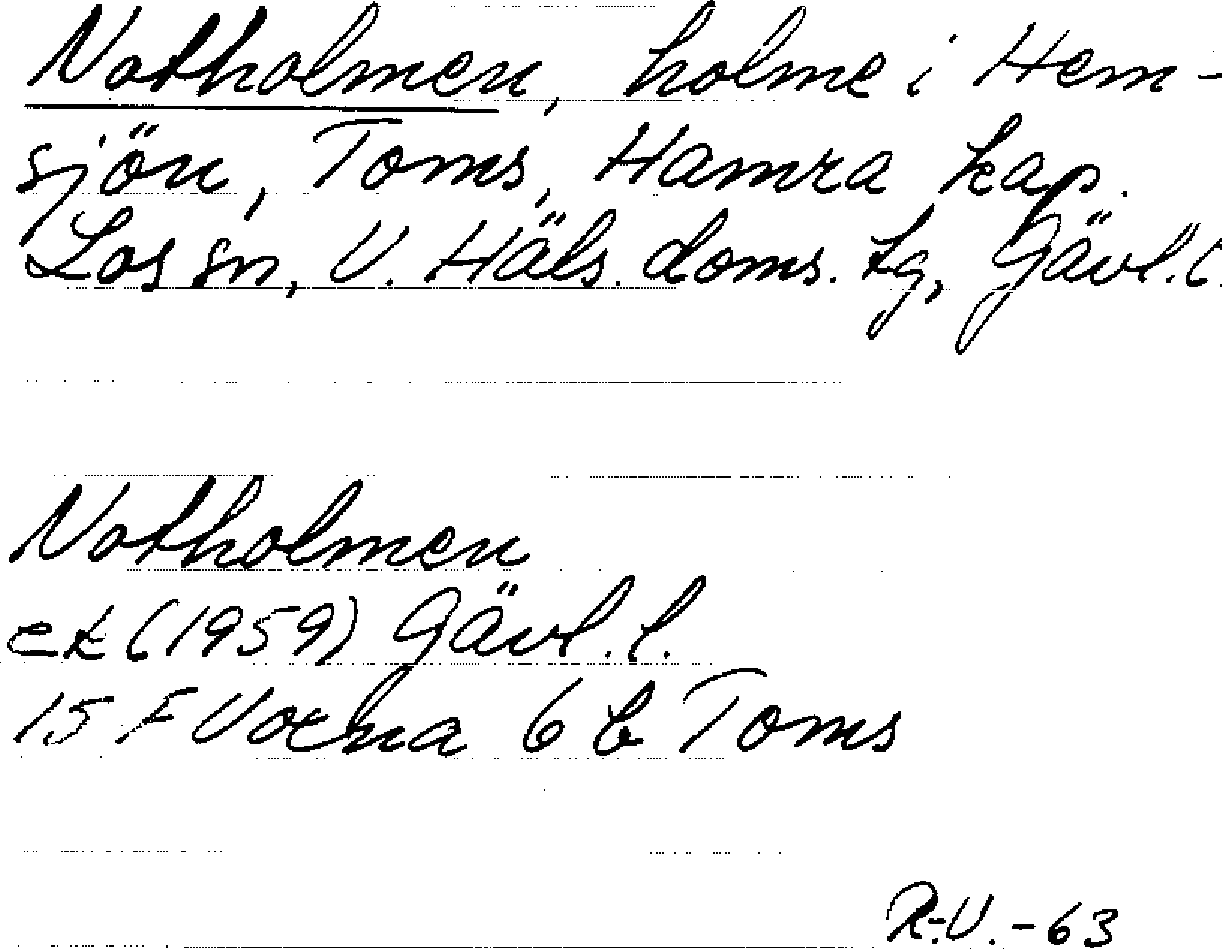 Notholmen, holme i Hem-
sjön, Toms, Hamra kap.
Los sn, V. Häls. doms. tg, Gävl. l.
Notholmen
ek (1959) Gävl. l.
15 F Voxna 6 b Toms
R.V. -63